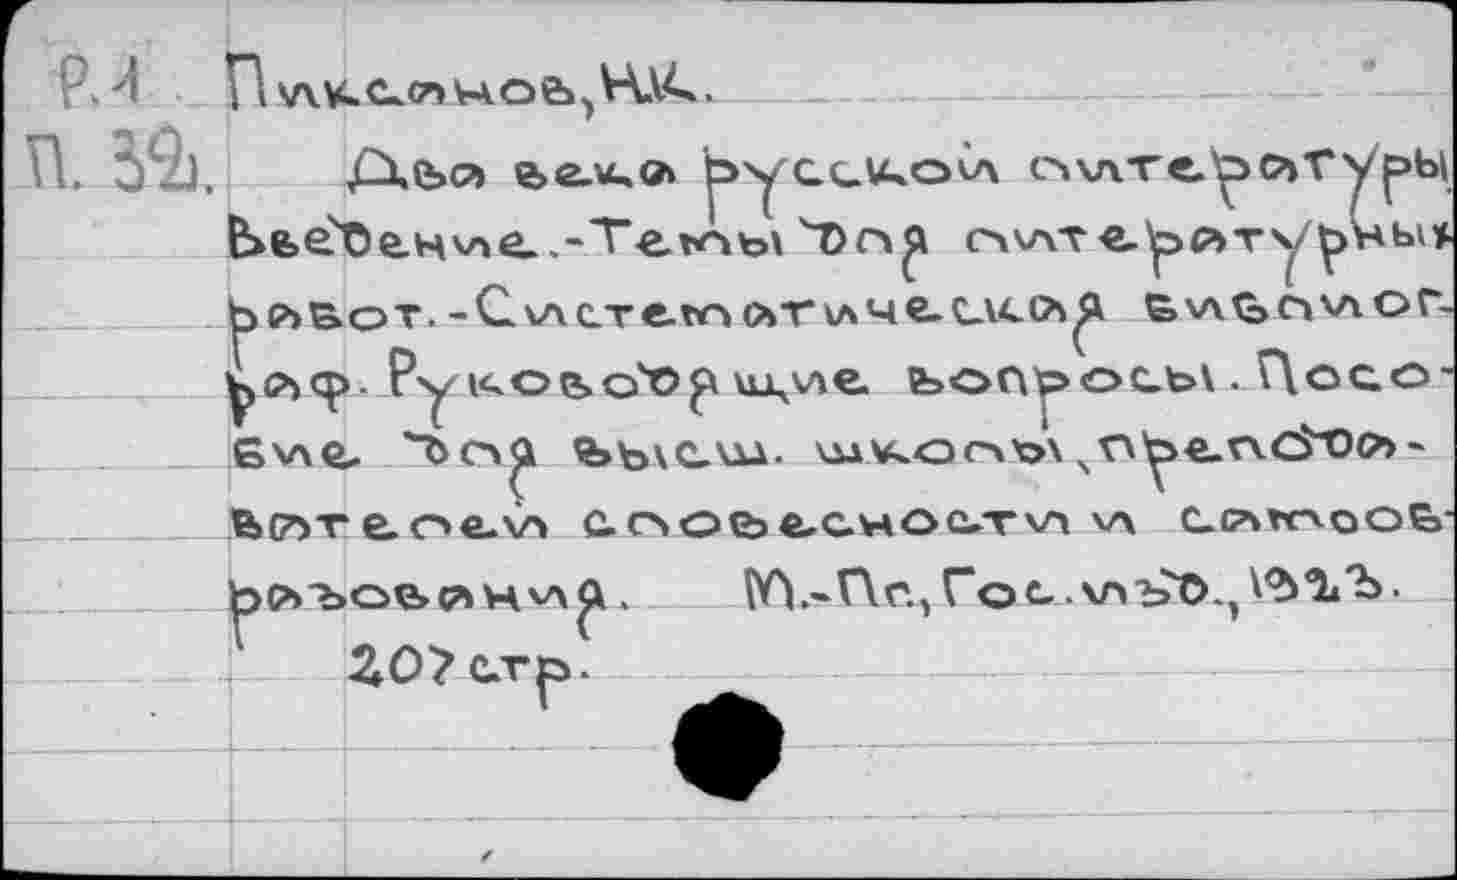 Р.1 Пиксанов, Н.К.
П.32. Два века русской литературы
Введение. - Темы для литературных
работ. - Систематическая библиог-
раф. Руководящие вопросы. Посо-
бие для высш. школы, препода-
вателей словесности и самооб-
разования. М.-Пг., Гос. изд., 1923.
207 стр.